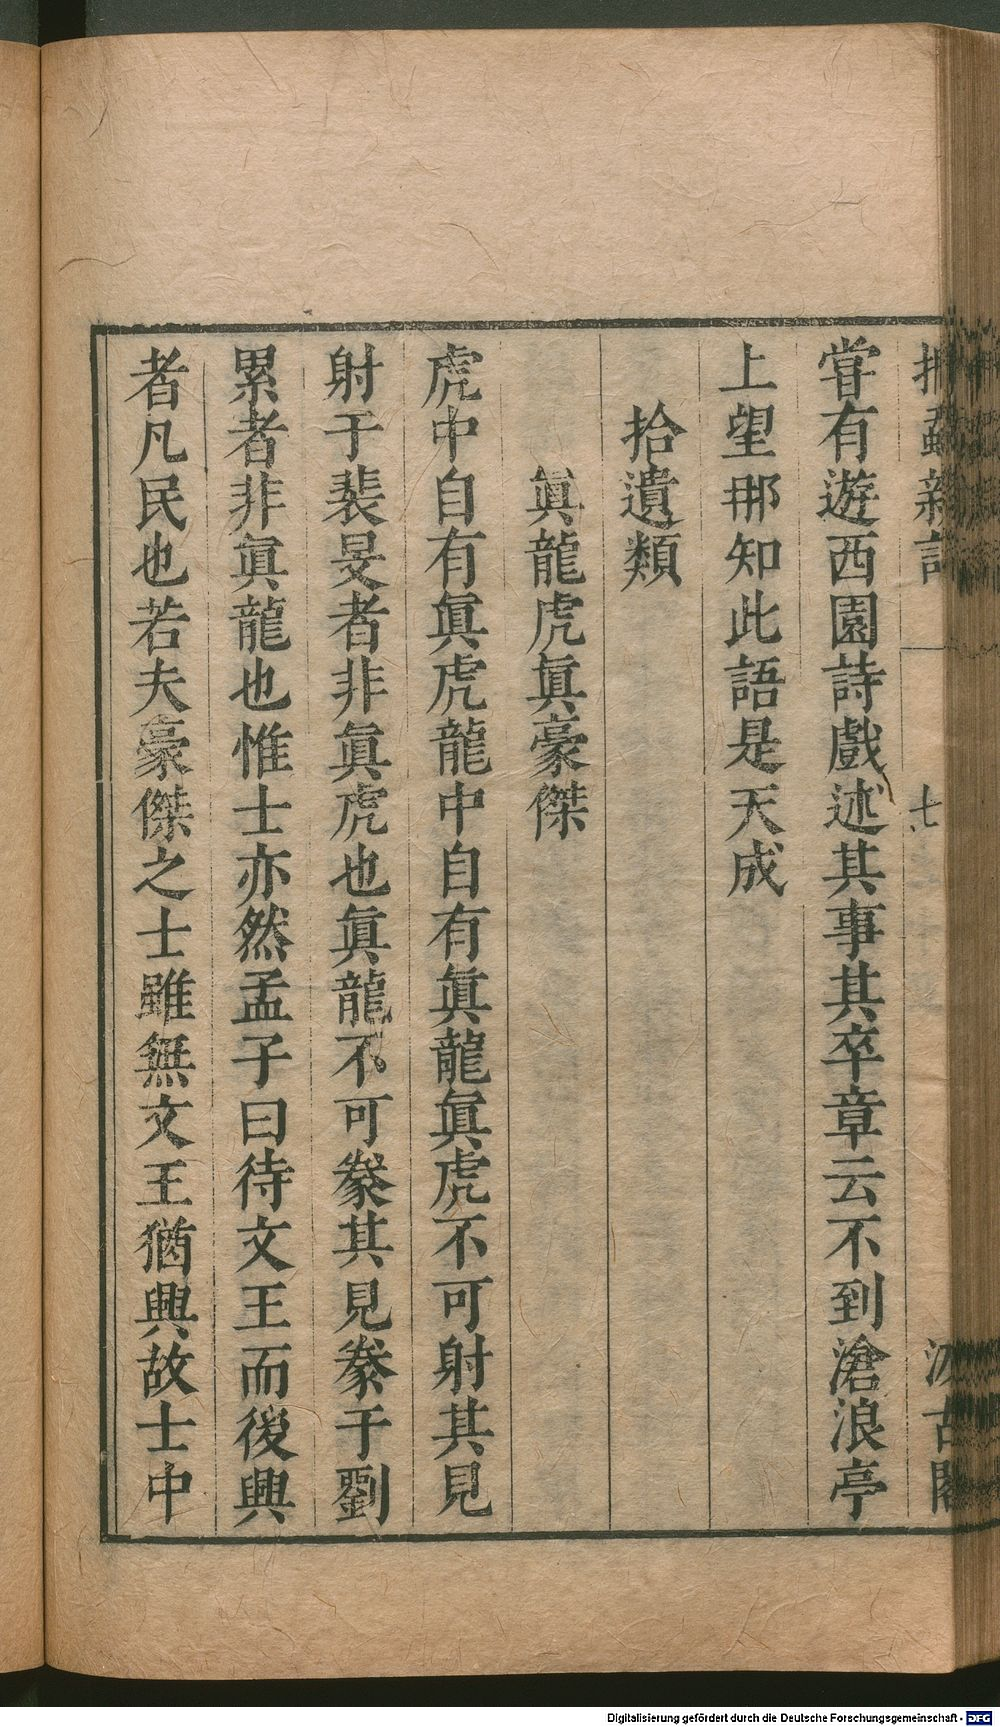 捫蝨新話
七
汲古閣
嘗有遊西園詩戲述其事其卒章云不到滄浪亭
上望那知此語是天成
拾遺類
眞龍虎眞豪傑
虎中自有眞虎龍中自有眞龍眞虎不可射其見
射于裴旻者非眞虎也眞龍不可豢其見豢于劉
累者非眞龍也惟士亦然孟子曰待文王而後興
者凡民也若夫豪傑之士雖無文王猶興故士中
Digitalisierung gefördert durch die Deutsche Forschungsgemeinschaft - DFG